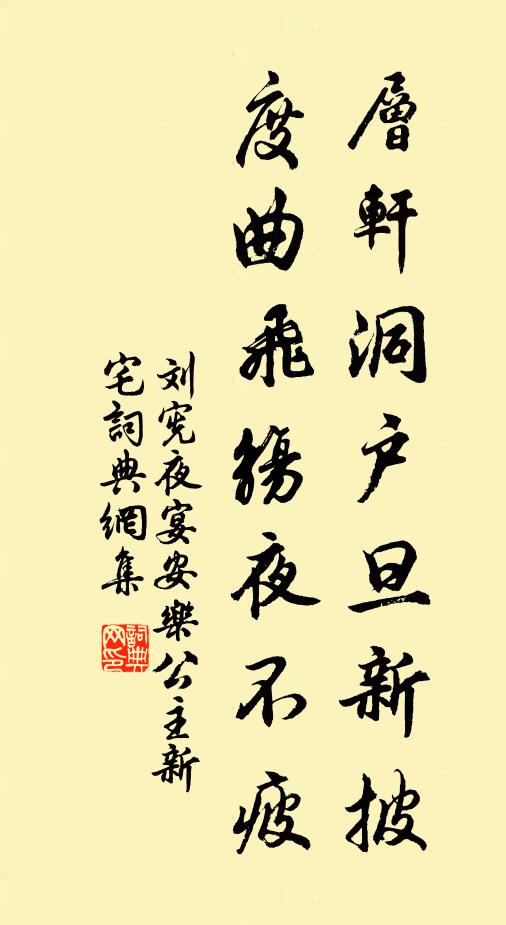 層軒洞户旦新披
度曲飛觴夜不疲
刘宪夜宴安樂公主新
宅詞典網集
詞典
网印